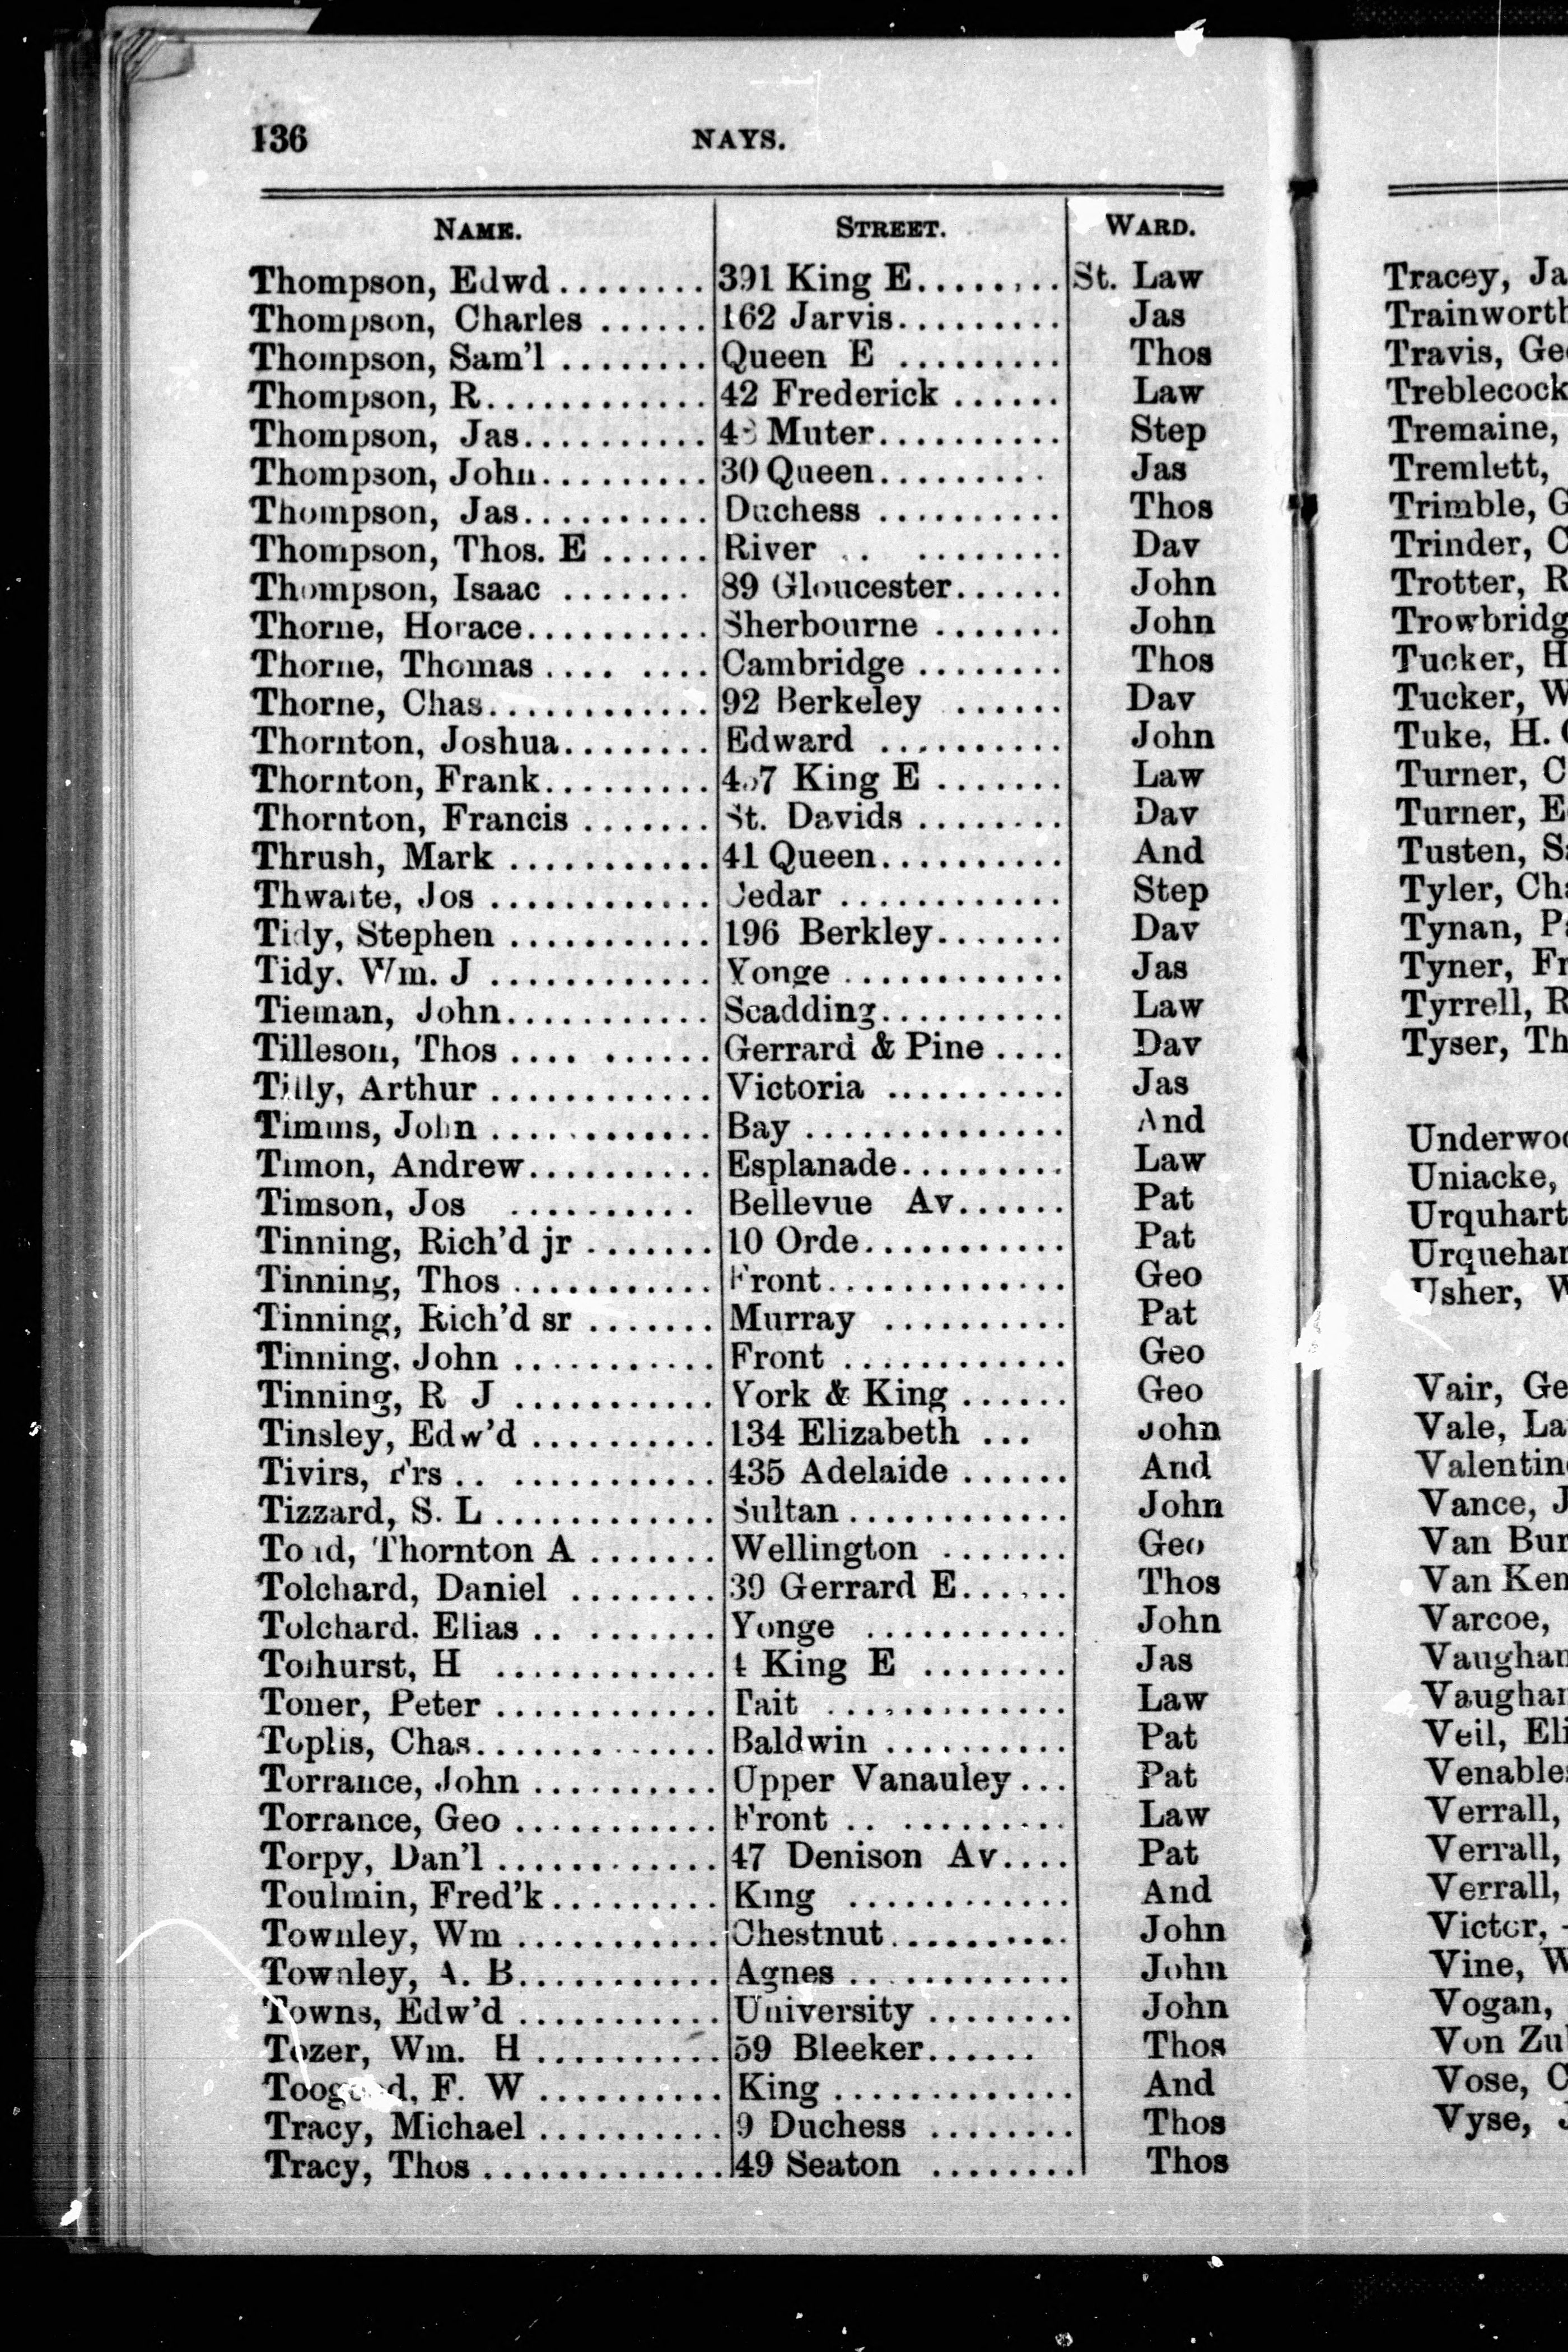 136 NAYS.
NAME. STREET. WARD.
Thompson, Edwd........ 391 King E........ St. Law
Thompson, Charles ...... 162 Jarvis......... Jas
Thompson, Sam'l ........ Queen E ......... Thos
Thompson, R............ 42 Frederick ...... Law
Thompson, Jas.......... Muter.......... Step
Thompson, John......... 30 Queen......... Jas
Thompson, Jas.......... Duchess .......... Thos
Thompson, Thos. E ...... River .. ........ Dav
Thompson, Isaac ....... 89 Gloucester...... John
Thorne, Horace.......... Sherbourne ....... John
Thorne, Thomas .... .... Cambridge ........ Thos
Thorne, Chas............ 92 Berkeley ...... Dav
Thornton, Joshua........ Edward .......... John
Thornton, Frank......... King E ....... Law
Thornton, Francis ....... St. Davids ........ Dav
Thrush, Mark ........... 41 Queen.......... And
Thwaite, Jos ............ Cedar ............ Step
Tidy, Stephen ........... 196 Berkley....... Dav
Tidy. Wm. J ............ Yonge ............ Jas
Tieman, John........... Scadding.......... Law
Tilleson, Thos .... ...... Gerrard & Pine .... Dav
Tilly, Arthur ............ Victoria .......... Jas
Timms, John ............ Bay .............. And
Timon, Andrew.......... Esplanade......... Law
Timson, Jos .......... Bellevue Av...... Pat
Tinning, Rich'd jr ....... 10 Orde........... Pat
Tinning, Thos ........... Front............. Geo
Tinning, Rich'd sr ....... Murray .......... Pat
Tinning. John ........... Front ............ Geo
Tinning, R J ........... York & King ...... Geo
Tinsley, Edw'd .......... 134 Elizabeth ... John
Tivirs, Frs .. ........... 435 Adelaide ...... And
Tizzard, S. L ............ Sultan ............ John
Thornton A ....... Wellington ....... Geo
Tolchard, Daniel ........ 39 Gerrard E...... Thos
Tolchard. Elias .. ....... Yonge ........... John
Tolhurst, H ............ 4 King E ........ Jas
Toner, Peter ............ Tait ............. Law
Toplis, Chas............. Baldwin .......... Pat
Torrance, John .......... Upper Vanauley... Pat
Torrance, Geo ........... Front .. ......... Law
Torpy, Dan'l ............ 47 Denison Av.... Pat
Toulmin, Fred'k......... King ............ And
Townley, Wm ........... Chestnut.......... John
Townley, A. B........... Agnes ............ John
Towns, Edw'd ........... University ........ John
Tozer, Wm. H .......... 59 Bleeker...... Thos
Toogood, F. W .......... King ............. And
Tracy, Michael .......... 9 Duchess ........ Thos
Tracy, Thos ............. 49 Seaton ........ Thos
Tracey, Ja
Trainworth
Travis, Geo
Treblecock
Tremaine,
Tremlett,
Trimble, G
Trinder, C
Trotter, R
Trowbridg
Tucker, H
Tucker, W
Tuke, H.
Turner, C
Turner, E
Tusten, Sa
Tyler, Cha
Tynan, Pa
Tyner, Fr
Tyrrell, R
Tyser, Th
Underwoo
Uniacke,
Urquhart
Urquehar
Usher, W
Vair, Ge
Vale, La
Valentin
Vance, J
Van Bur
Van Ken
Varcoe,
Vaughan
Vaughan
Veil, Eli
Venables
Verrall,
Verrall,
Verrall,
Victor,
Vine, W
Vogan,
Von Zu
Vose, C
Vyse, J